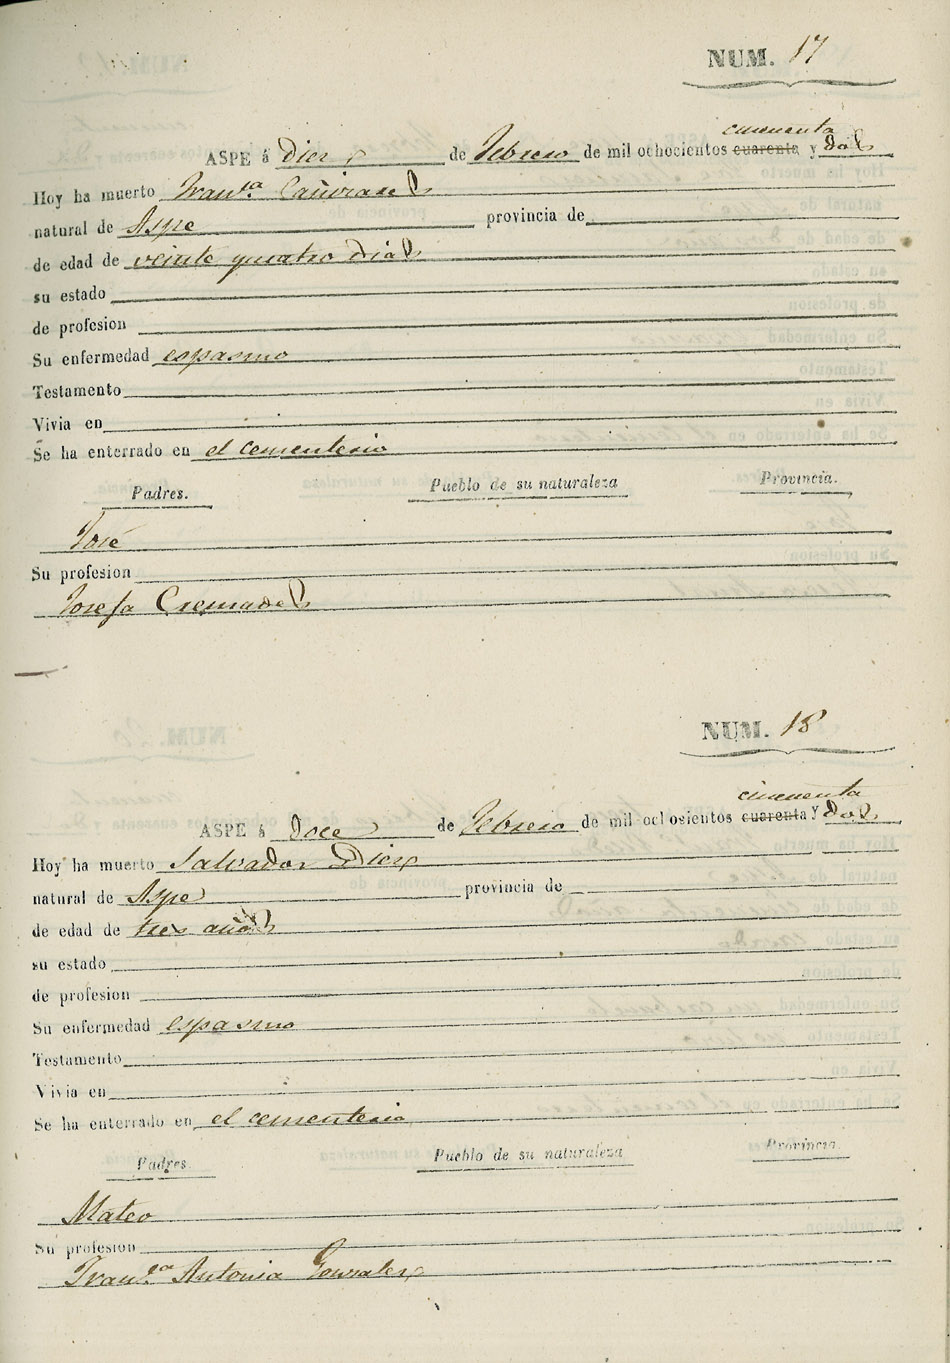 NUM. 17
cincuenta
ASPE á Diez de Febrero de mil ochocientos cuarenta y dos
Hoy ha muerto Fran.ca Cañizares
natural de Aspe provincia de
de edad de veinte quatro dias
su estado
de profesion
Su enfermedad espasmo
Testamento
Vivia en
Se ha enterrado en el cementerio
Padres. Pueblo de su naturaleza Provincia.
José
Su profesion
Josefa Cremades
NUM. 18
cincuenta
ASPE á Doce de Febrero de mil ochosientos cuarenta y dos
Hoy ha muerto Salvador Diez
natural de Aspe provincia de
de edad de tres años
su estado
de profesion
Su enfermedad espasmo
Testamento
Vivia en
Se ha enterrado en el cementerio
Padres. Pueblo de su naturaleza Provincia.
Mateo
Su profesion
Fran.ca Antonia Gonzalez